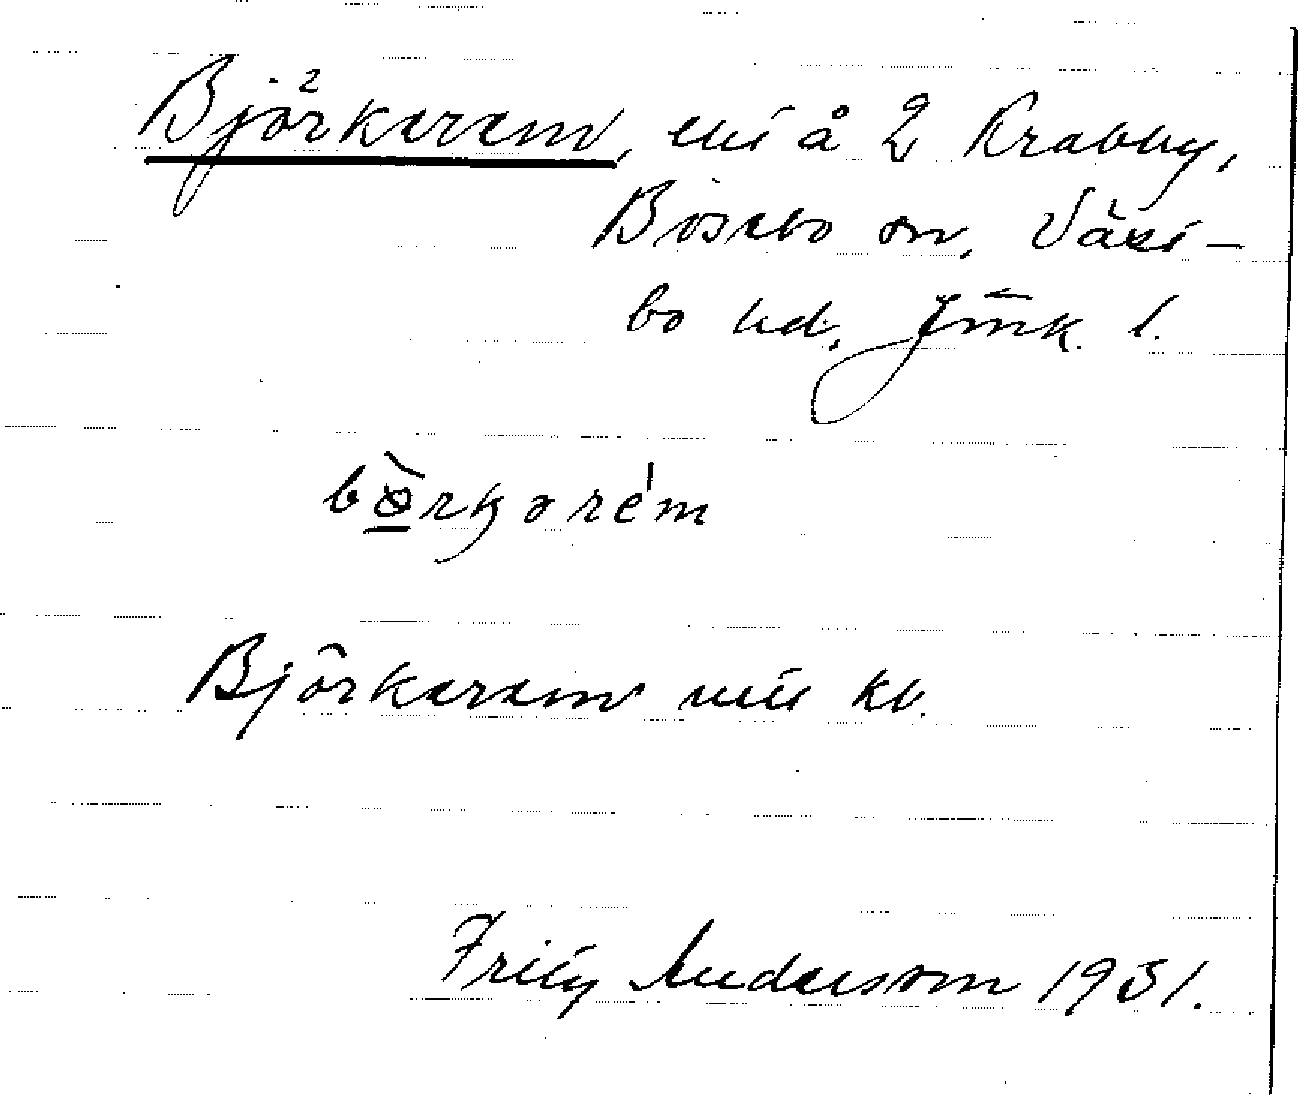 Björkerem, vid å 2 Krabby,
Bosebo sn, Väst-
bo hd, Jönk. l.
bœ̀rkarém
Björkerem
Fritz Andersson 1931.